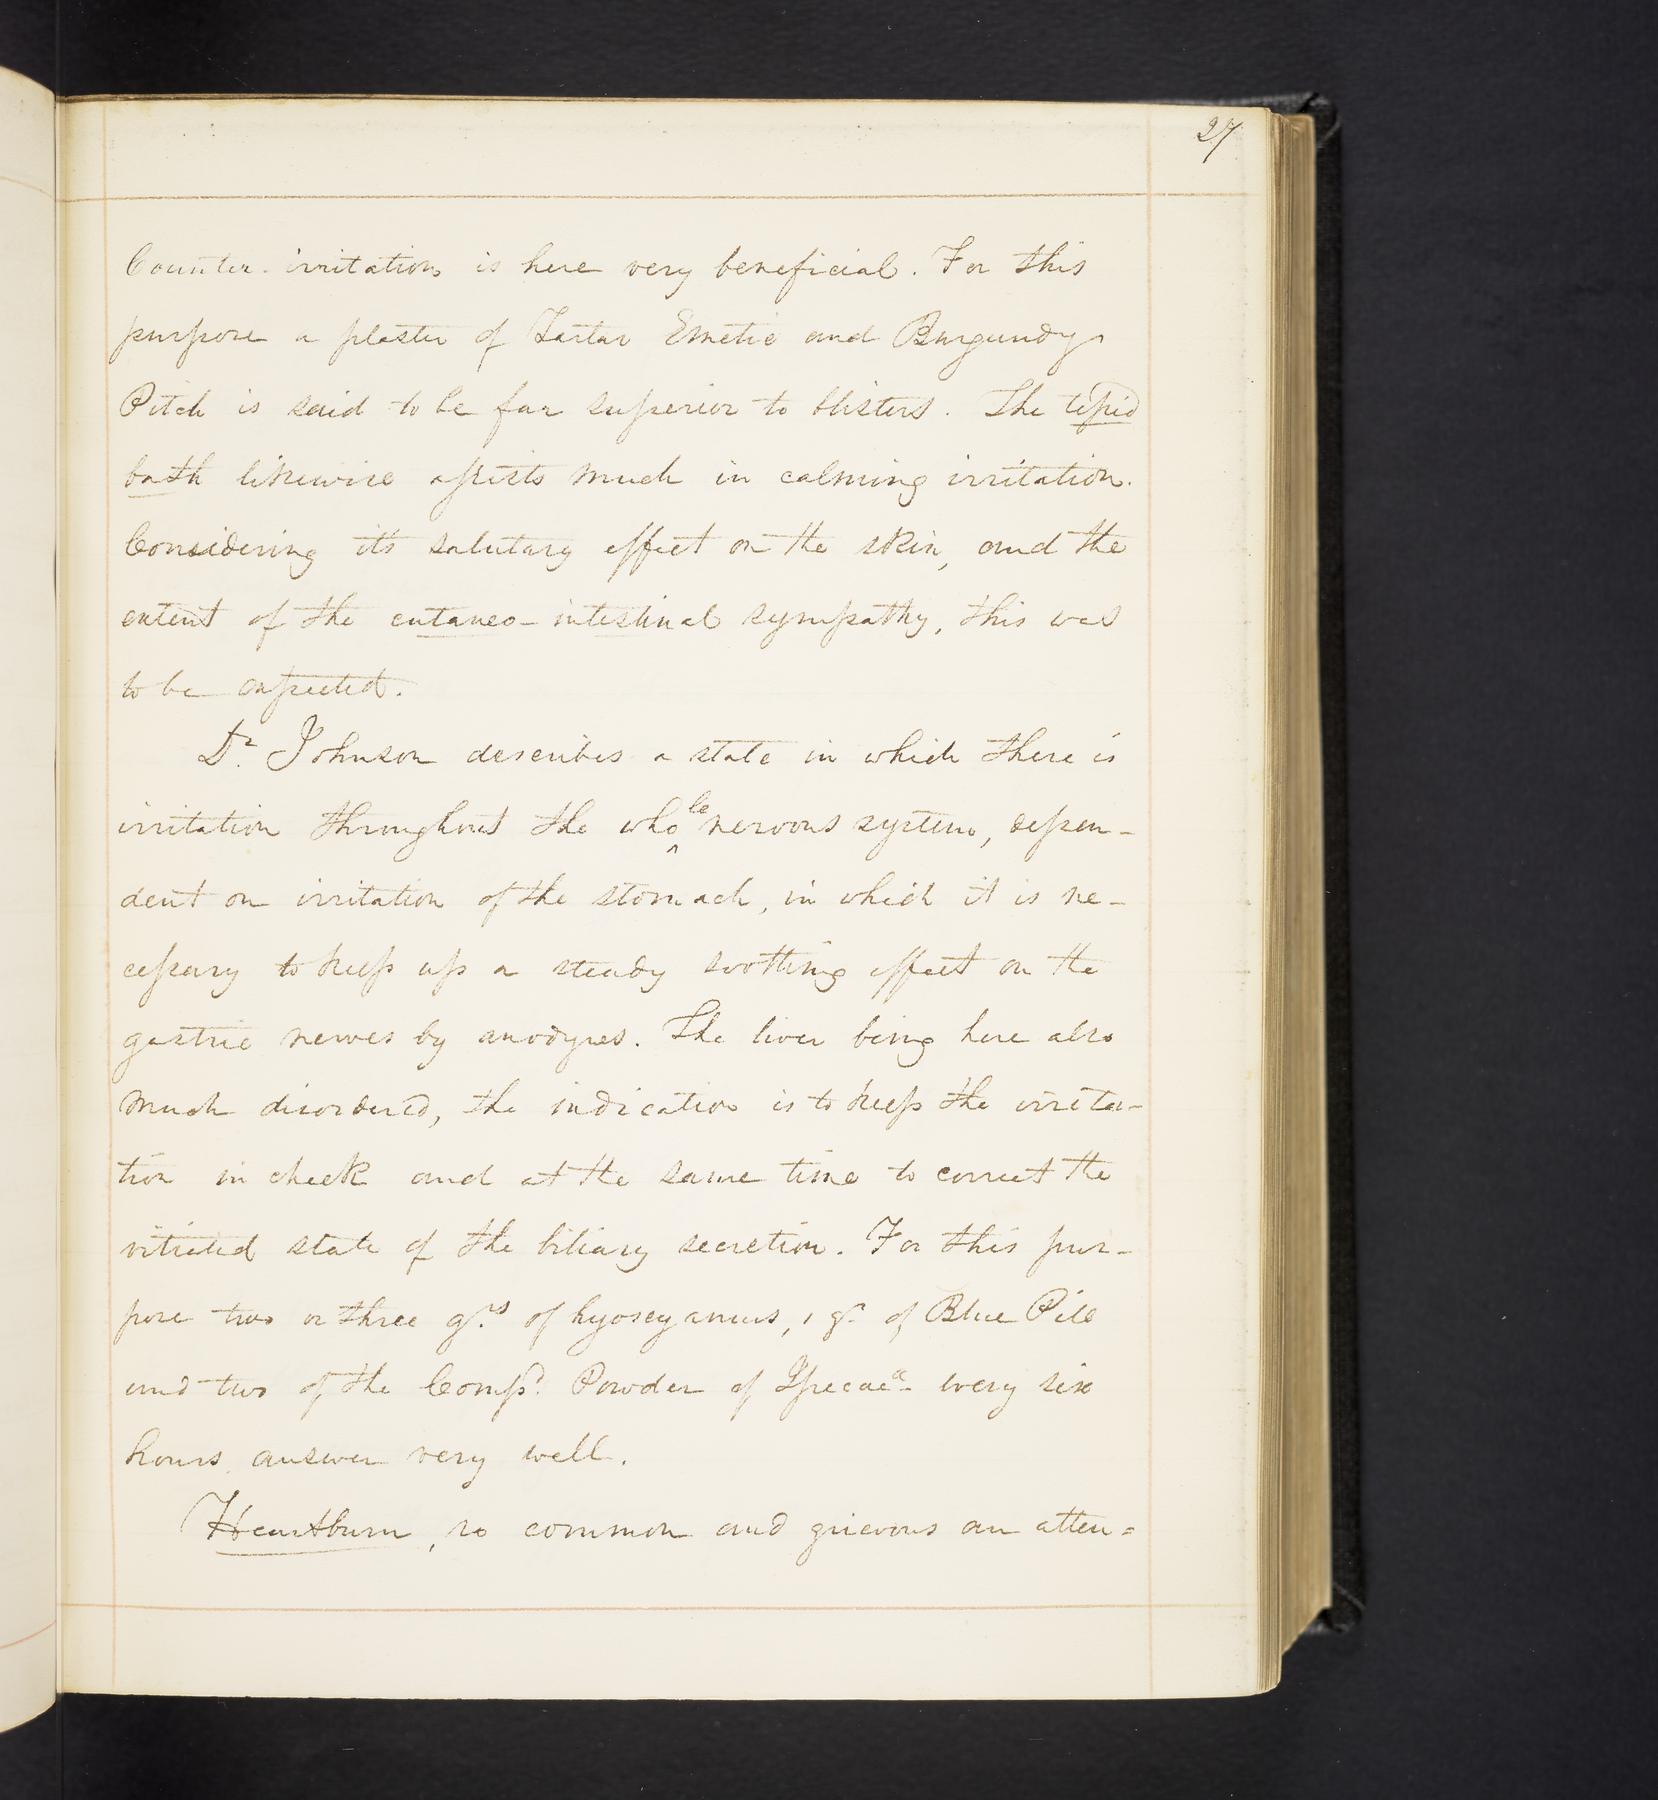 27
Counter-irritation is here very beneficial. For this
purpose a plaster of Tartar Emetic and Burgundy
Pitch is said to be far superior to blisters. The tepid
bath likewise assists much in calming irritation.
Considering it's salutary effect on the skin, and the
extent of the cutaneo-intestinal sympathy, this was
to be expected.
Dr. Johnson describes a state in which there is
irritation throughout the whole nervous system, depen-
dent on irritation of the stomach, in which it is ne-
cessary to keep up a steady soothing effect on the
gastric nerves by anodynes. The liver being here also
much disordered, the indication is to keep the irrita-
tion in check and at the same time to correct the
vitiated state of the biliary secretion. For this pur-
pose two or three grs. of hyoscyamus, 1 gr. of Blue Pill
and two of the Compd. Powder of Ipecaca. every six
hours answer very well.
Heartburn, so common and grievous an atten=